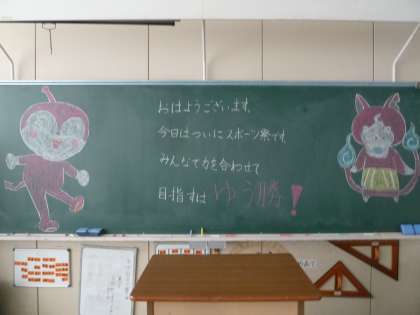 おはようございます。
今日はついにスポーツ祭です。
みんなで力を合わせて
目指すは ゆう勝!